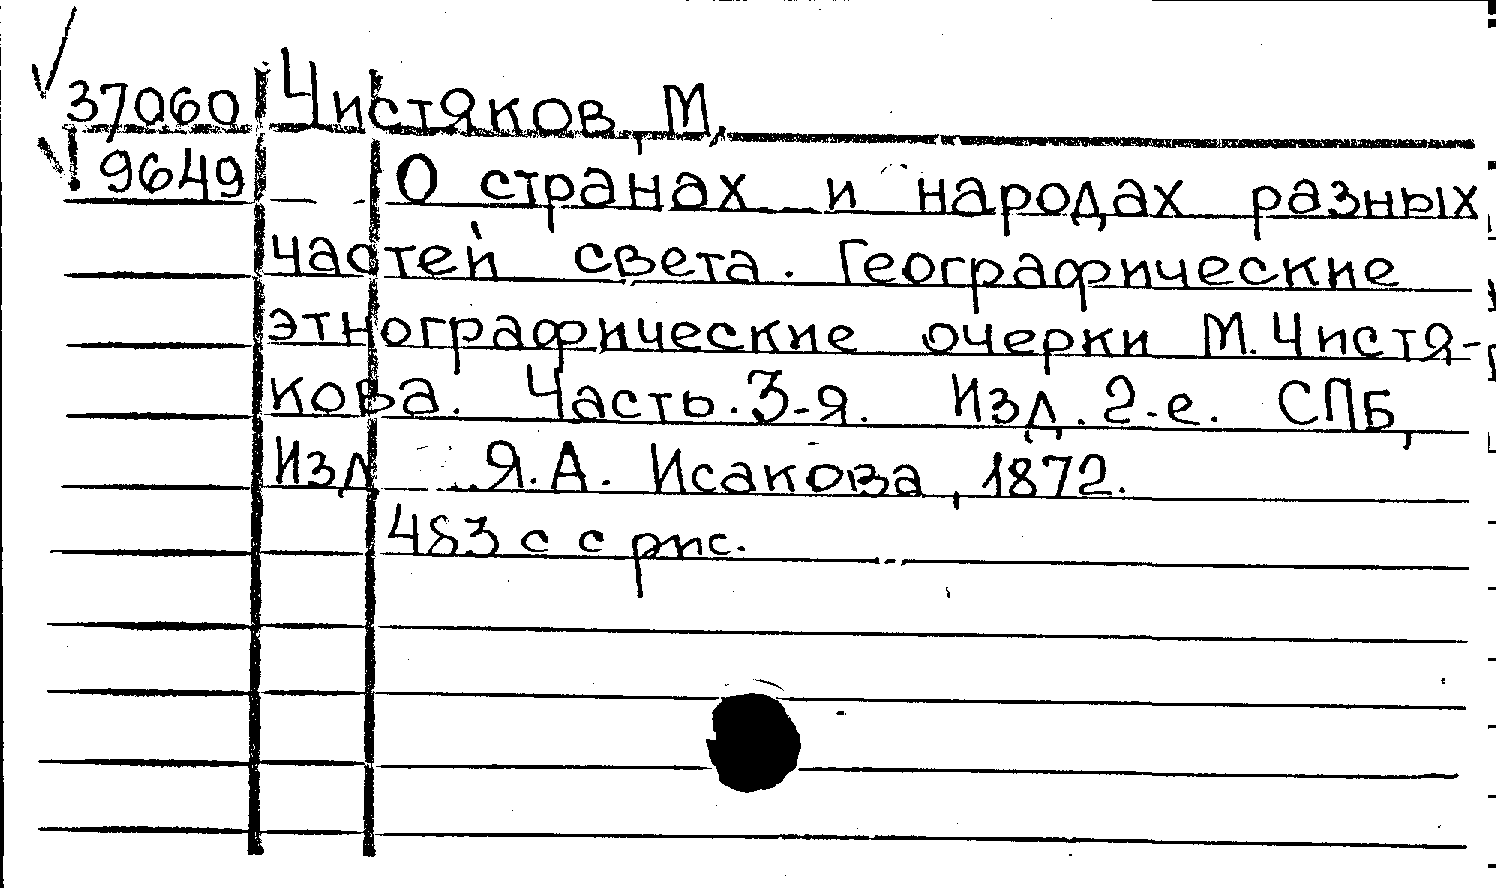 37060 Чистяков, М.
9649 О странах и народах разных
частей света. Географические
этнографические очерки М. Чистя-
кова. Часть. 3-я. Изд. 2-е. СПБ,
Изд Я.А. Исакова, 1872.
483 с с рис.